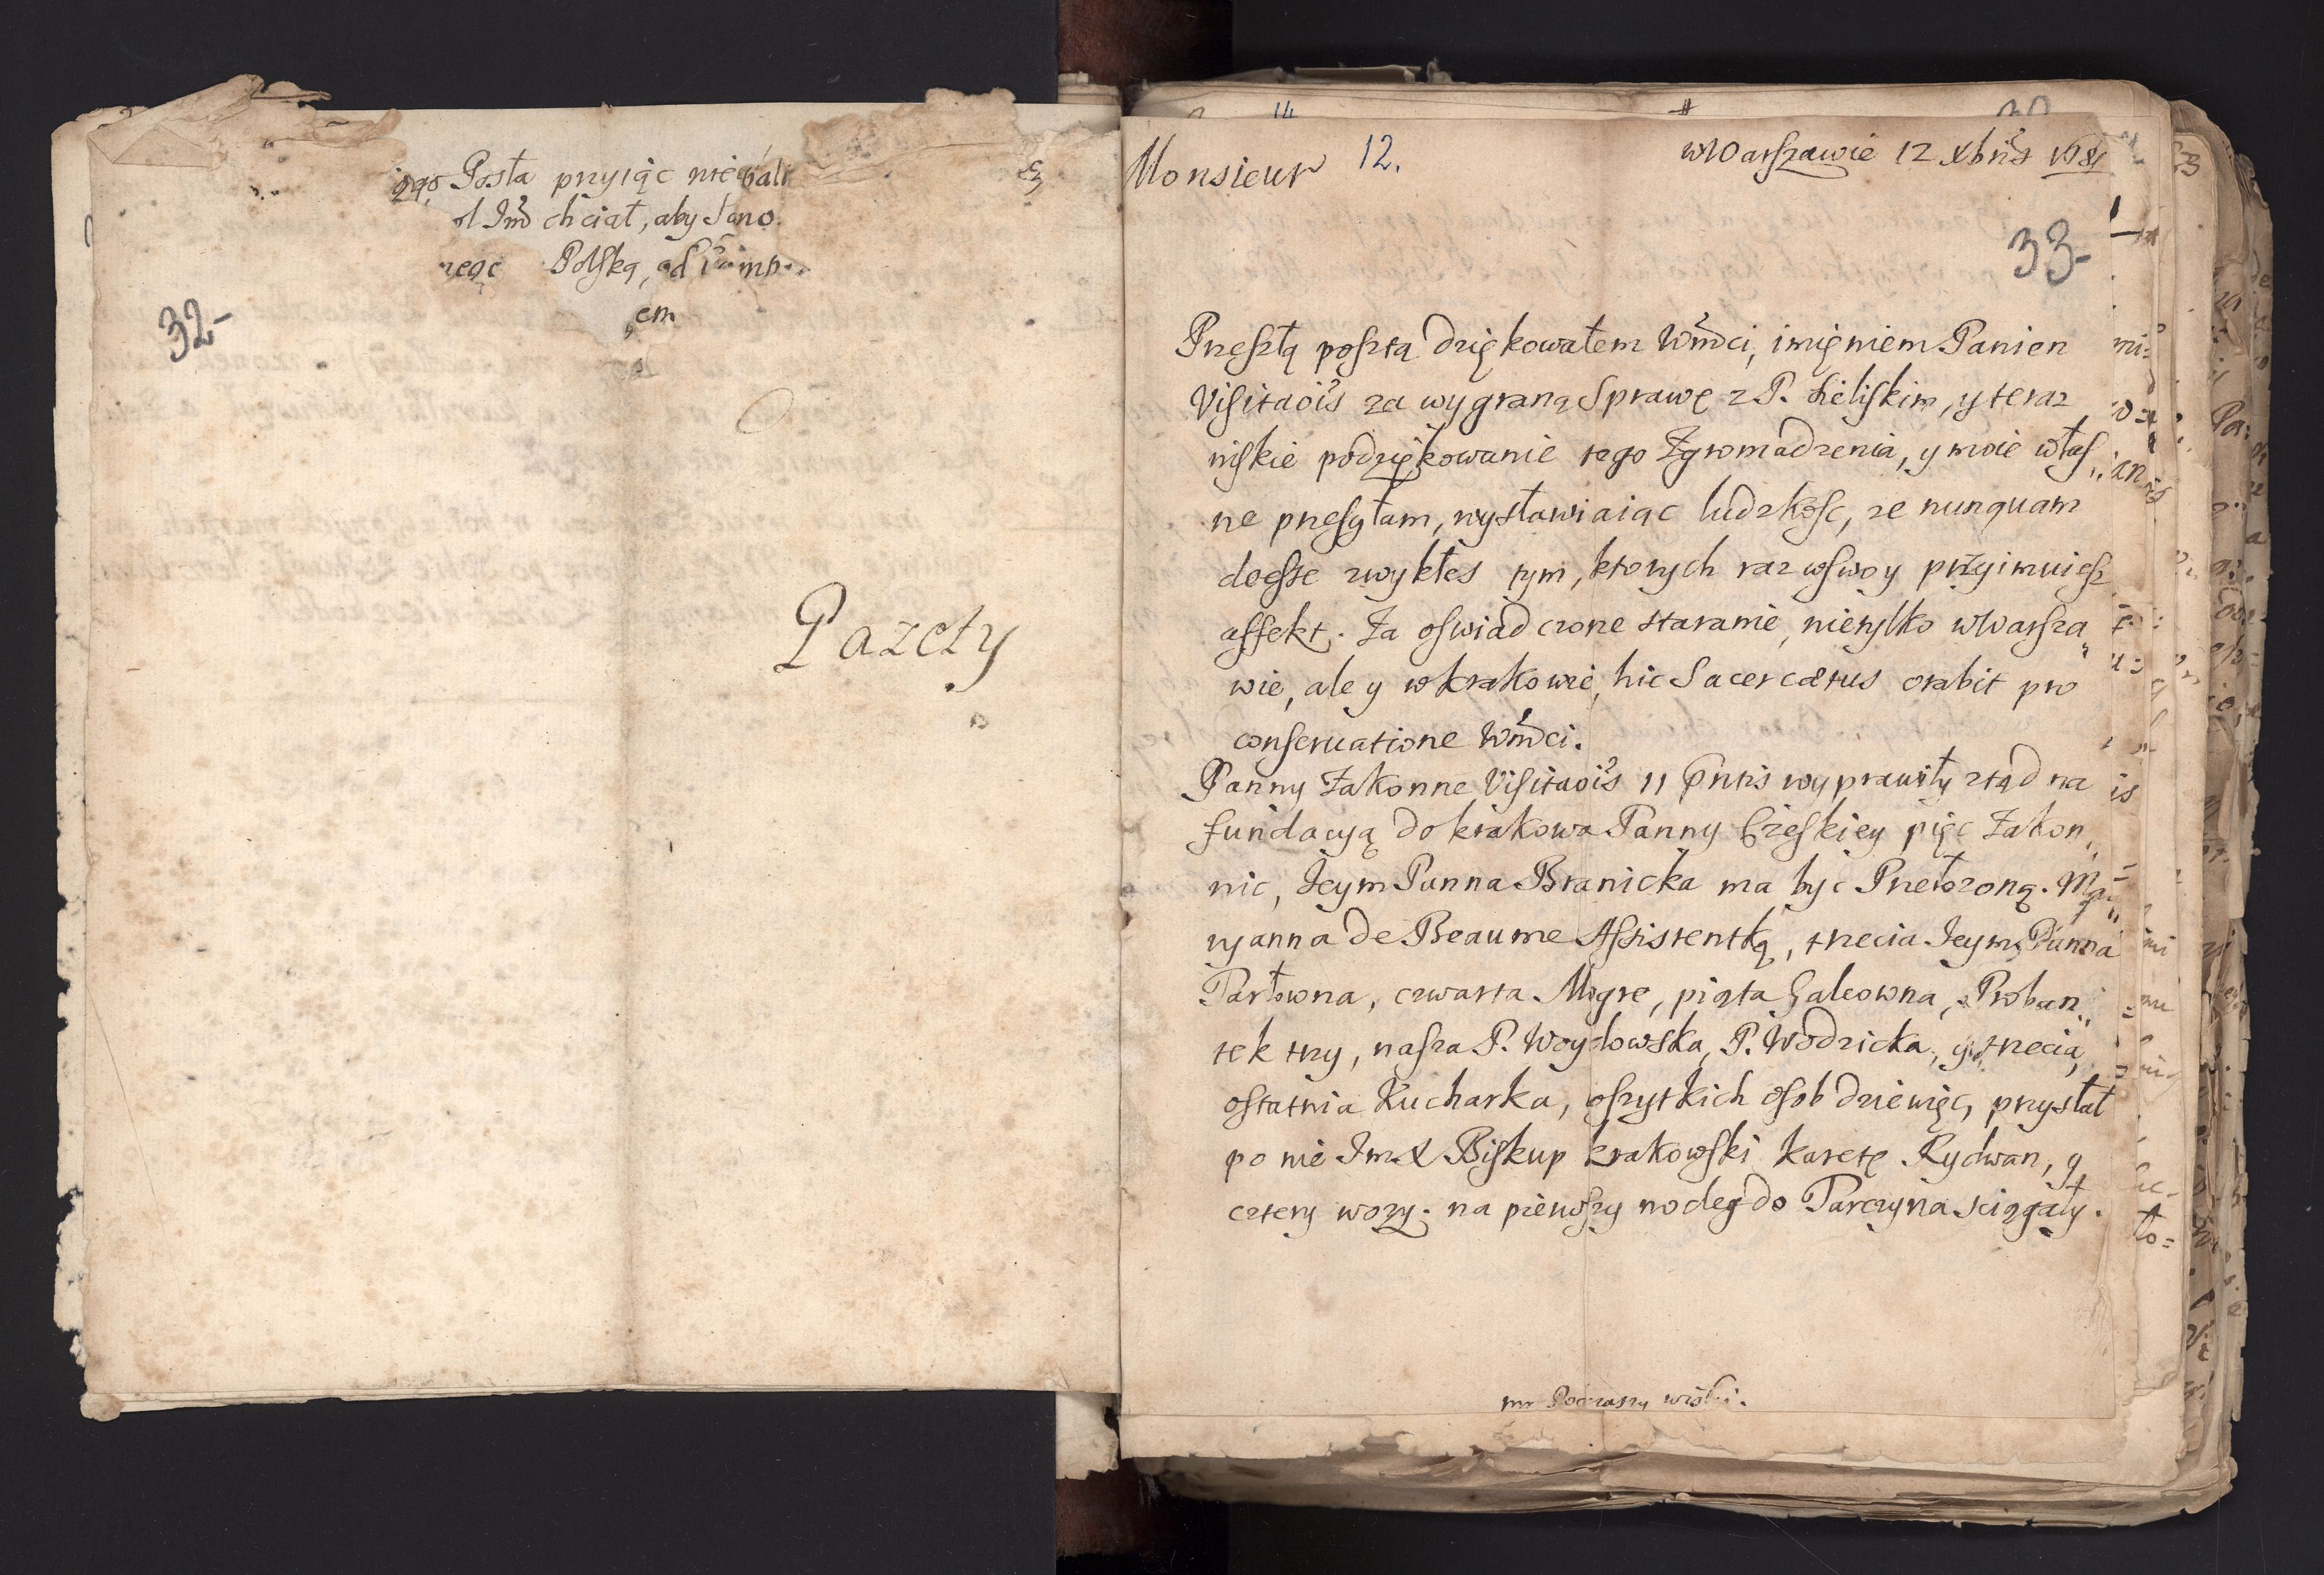 Posła przyiąc nie
chciał, aby
Polską, od
em
32-
Gazety
Monsieur 12. w Warszawie 12 Xbris 1681
33-
Przeszłą posztą dziękowałem WMci, imięniem Panien
Visitaōis za wygraną Sprawę z P. Lieliskim, y teraz
niskie podziękowanie tego Zgromadzenia, y moie włas„
ne przesyłam, wysławiaiąc ludzkosc, ze nunquam
deesse zwykłes tym, ktorych raz w swoy przyimuiesz
affekt. Za oswiadczone staranie, nietylko w Warsza„
wie, ale y w Krakowie, hic Sacer cætus orabit pro
conseruatione WMci.
Panny Zakonne Visitaōis 11 pntis wyprawiły ztąd na
fundacyą do Krakowa Panny Czeskiey pięc Zakon„
nic, Jeym Panna Branicka ma byc Przełozoną. Ma„
ryanna de Beaume Assistentką, trzecia Jeym Panna
Tarłowna, czwarta Migre, piąta Galeowna, Proban„
tek trzy, nasza P. Woysłowska, P. Wodzicka, y trzecia,
ostatnia Kucharka, wszytkich osob dziewięc, przysłał
po nie Jm X Biskup Krakowski karetę Rydwan, y
cztery wozy. na pierwszy nocleg do Tarczyna sciągały.
mr Podczaszy